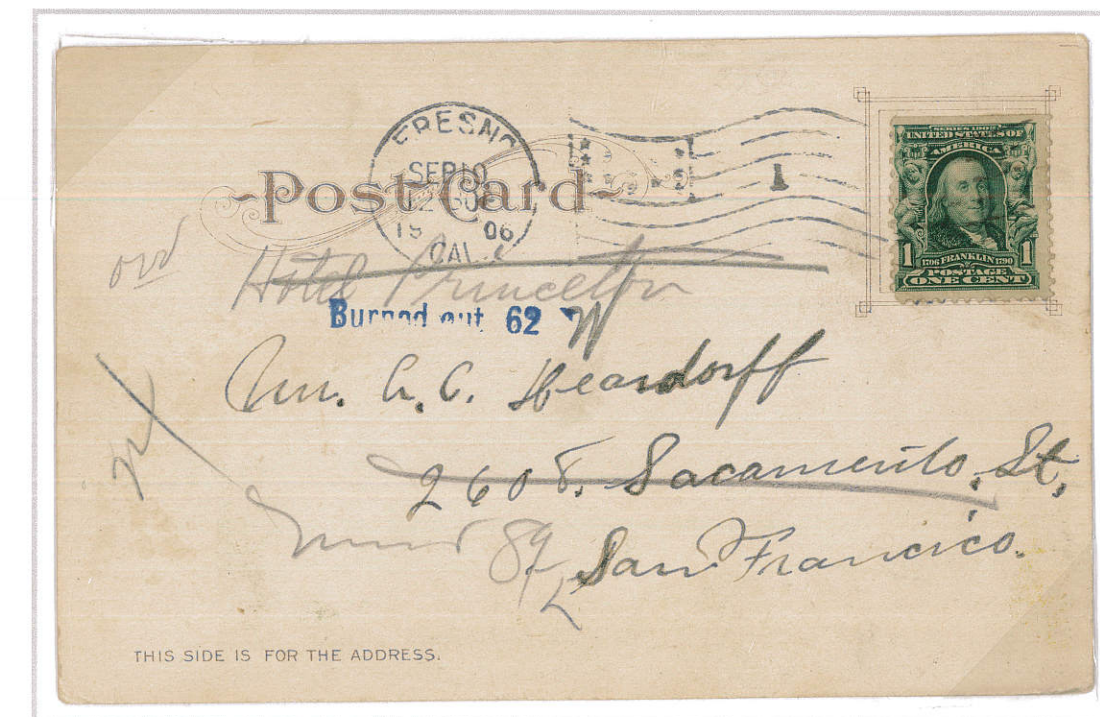 FRESNO
SEP 10
1906
CAL.
1
SERIES 1902
UNITED STATES OF
AMERICA
1 1706 FRANKLIN 1790 1
POSTAGE
ONE CENT
Post Card
Hotel Princeton
Burned out 62
A. C. Heardorff
2608. Sacamento. St,
89
San Francico.
THIS SIDE IS FOR THE ADDRESS.